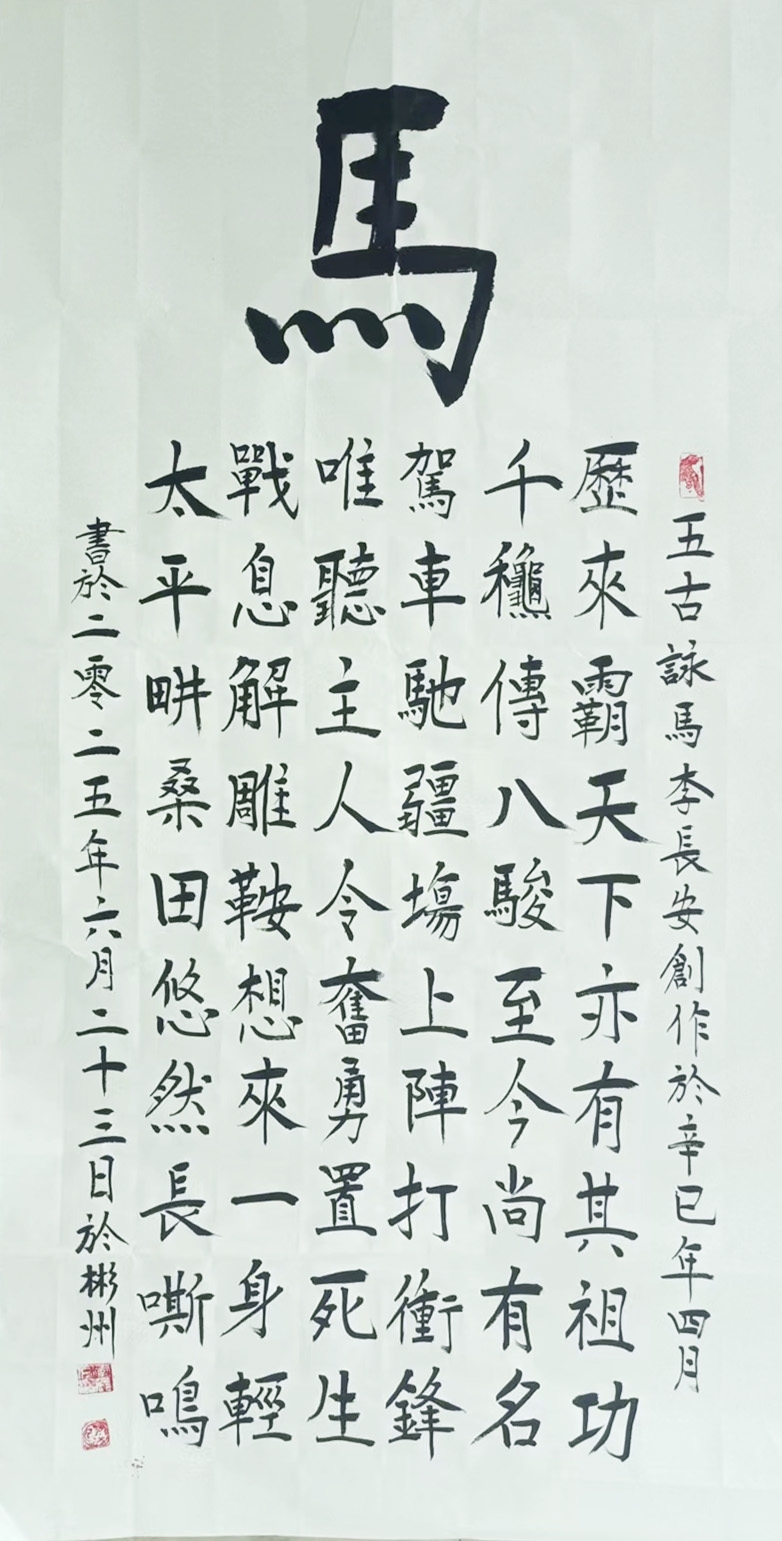 馬
五古詠馬李長安創作於辛巳年四月
歷來霸天下亦有其祖功
千龝傳八駿至今尚有名
駕車馳疆場上陣打衝鋒
唯聽主人令奮勇置死生
戰息解雕鞍想來一身輕
太平畊桑田悠然長嘶鳴
書於二零二五年六月二十三日於彬州